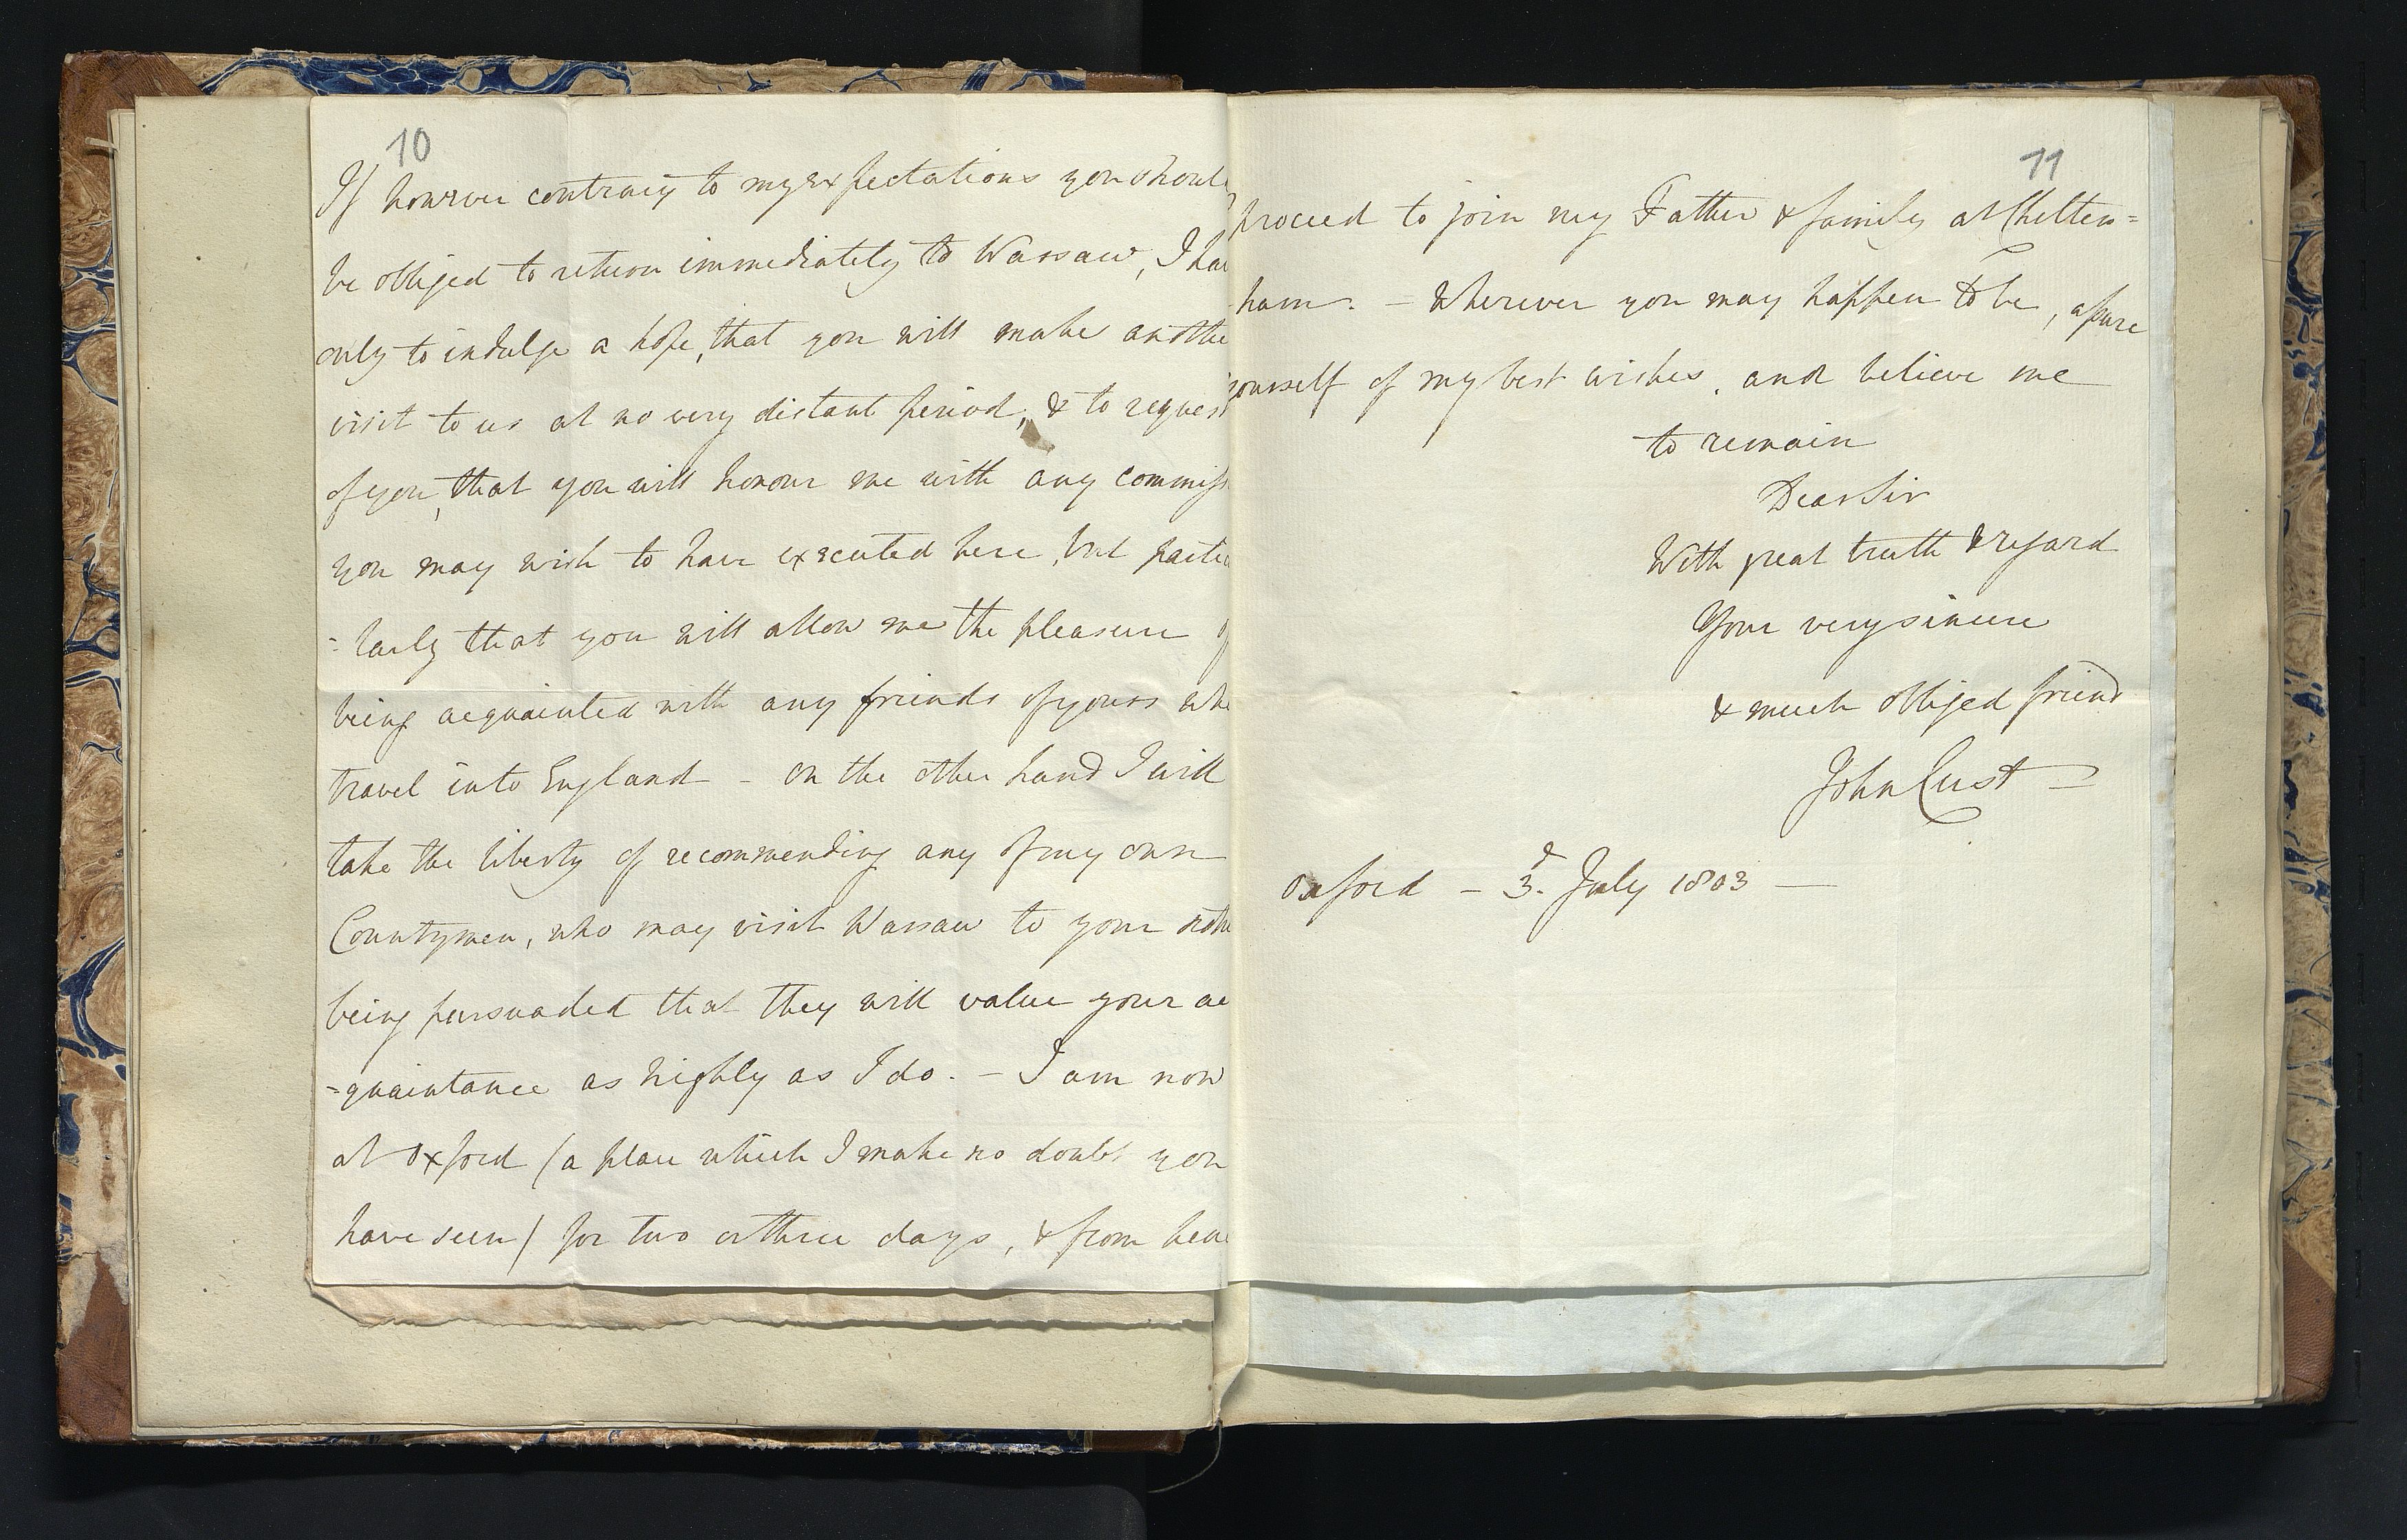 10
If however contrary to my expectations you should
be obliged to return immediately to Warsaw, I ha
only to indulge a hope, that you will make anothe
visit to us at no very distant period, & to request
of you, that you will honour me with any commiss
you may wish to have executed here, but particu
=larly that you will allow me the pleasure of
being acquainted with any friends of yours who
travel into England - on the other hand I will
take the liberty of recommending any of my own
Countrymen, who may visit Warsaw to your notice
being persuaded that they will value your ac
=quaintance as highly as I do. - I am now
at Oxford (a place which I make no doubt you
have seen) for two or three days, & from hence
11
proceed to join my Father & family at Chelten=
ham. - Wherever you may happen to be, assure
yourself of my best wishes, and believe me
to remain
Dear Sir
With great truth & regard
Your very sincere
& much obliged friend
John Cust -
Oxford - 3.d July 1803 -